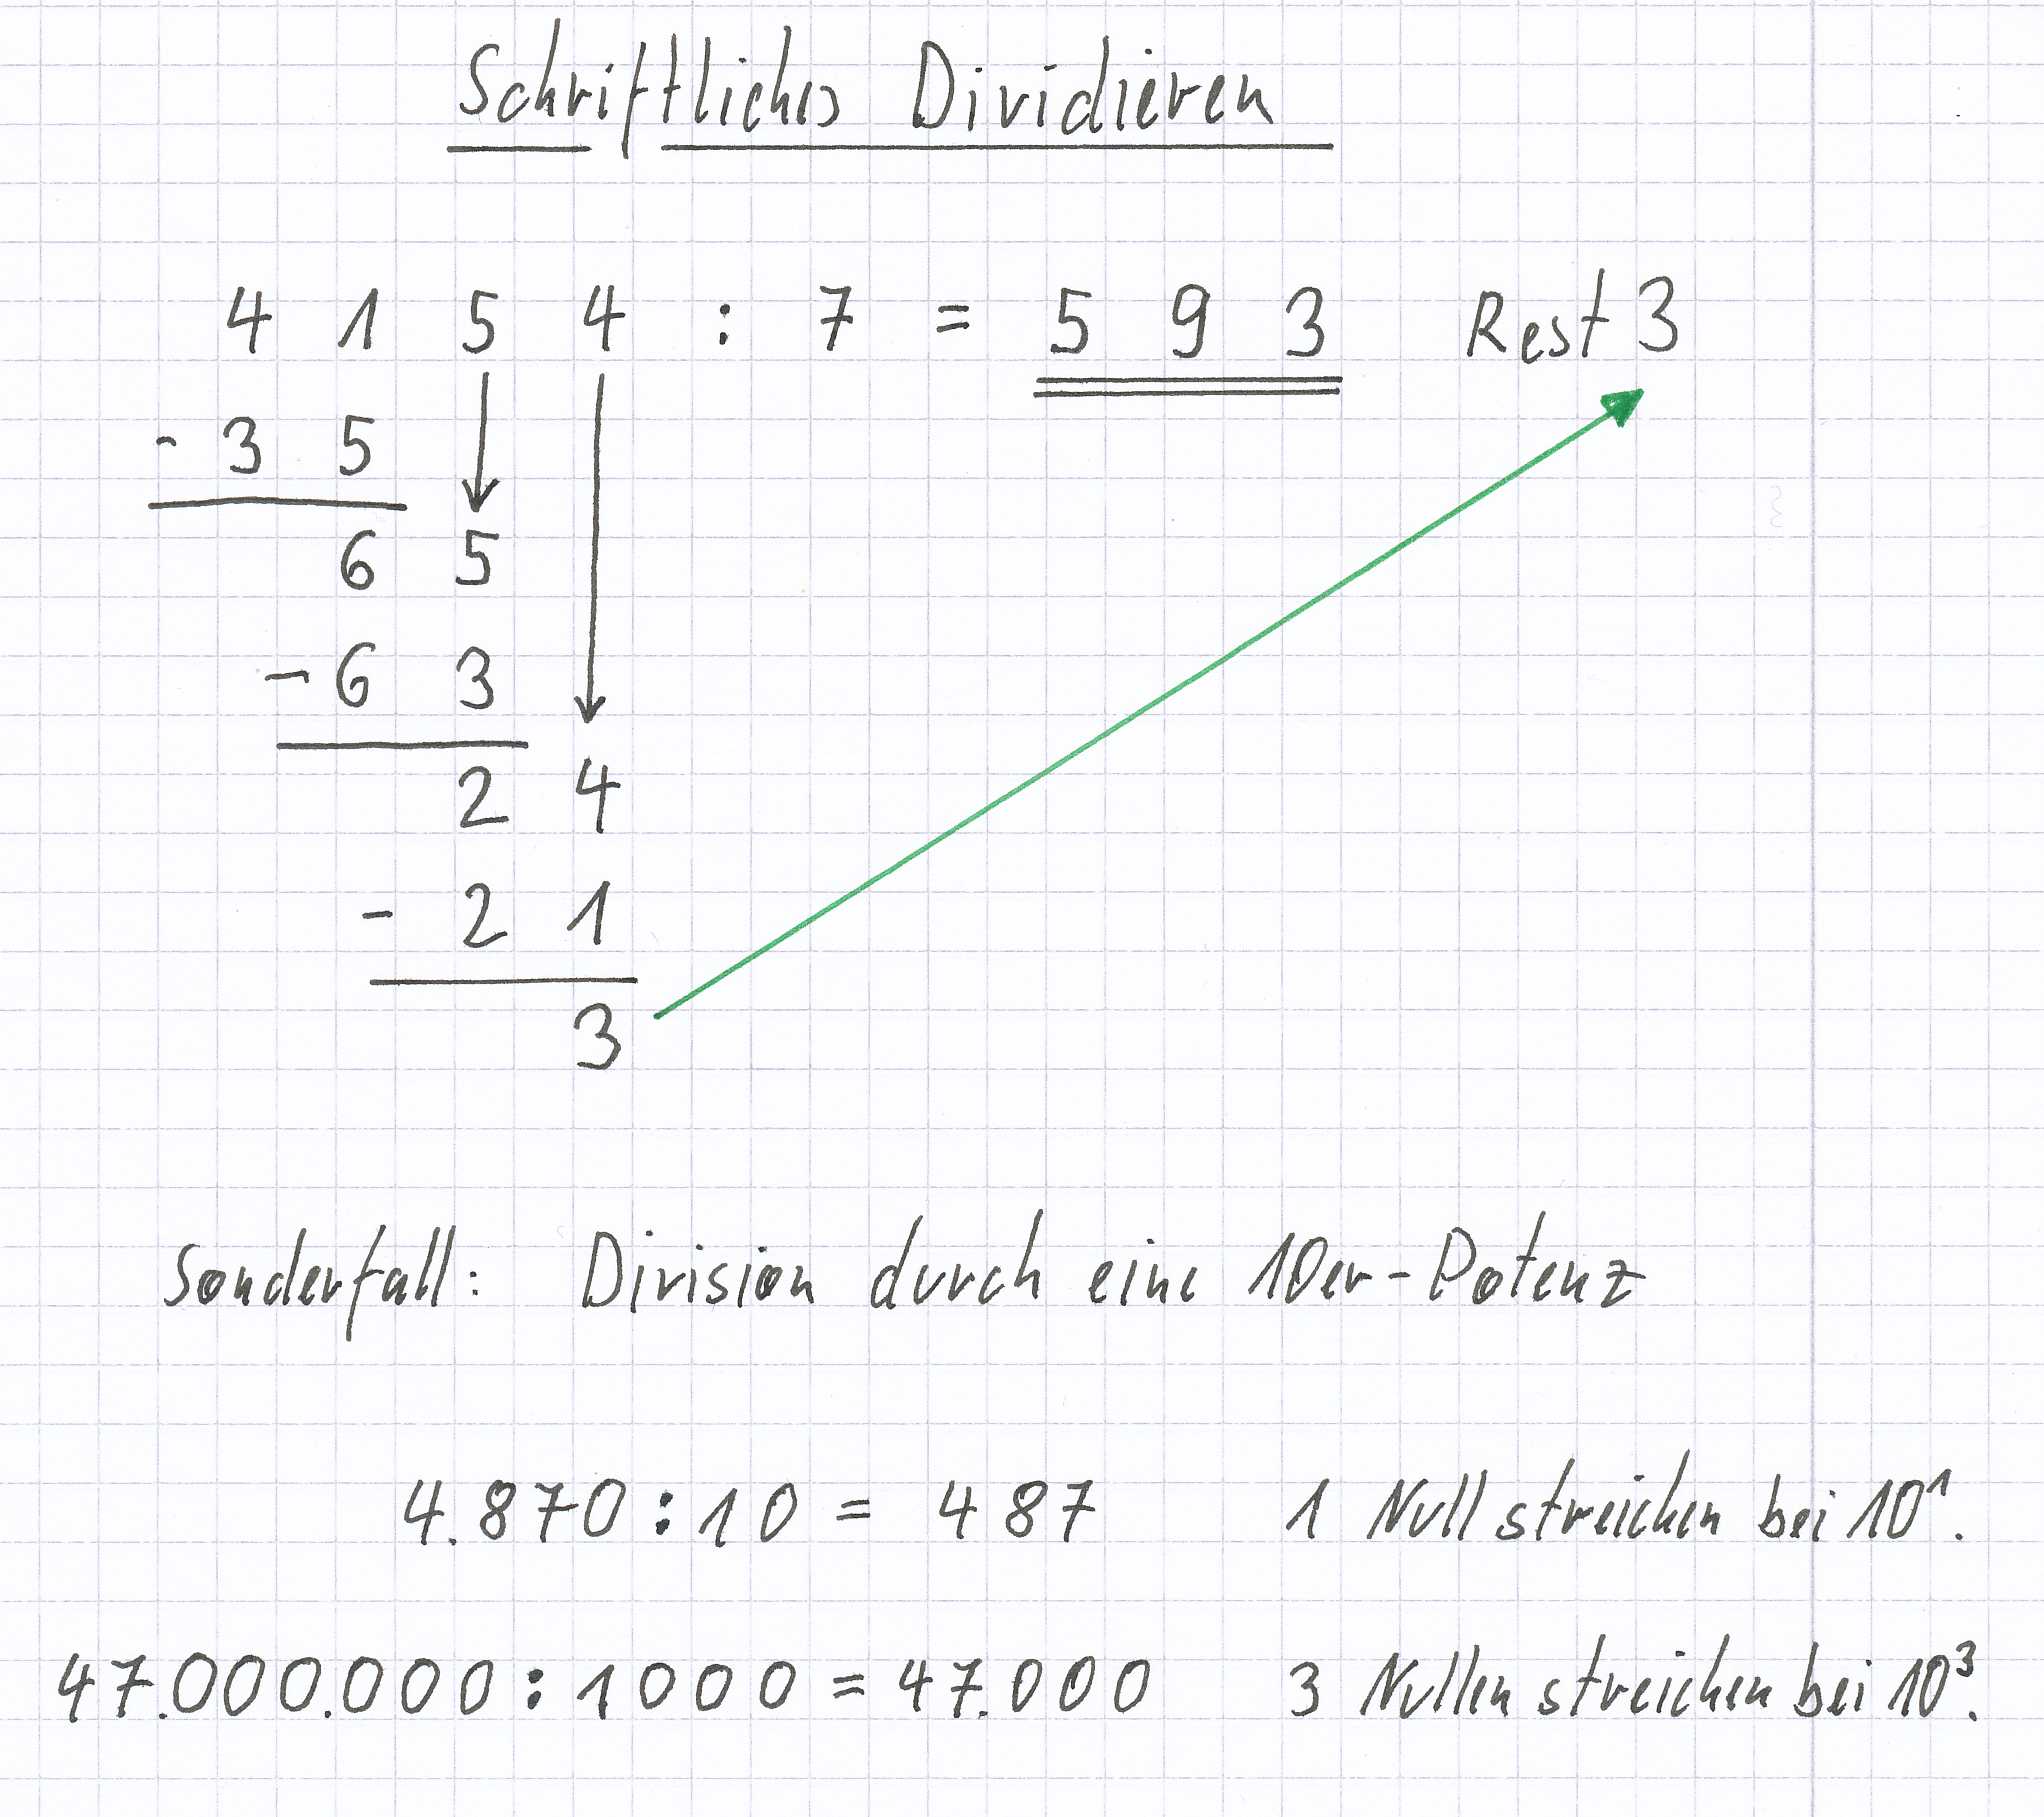 Schriftliches Dividieren
4 1 5 4 : 7 = 5 9 3 Rest 3
- 3 5
6 5
- 6 3
2 4
- 2 1
3
Sonderfall: Division durch eine 10er-Potenz
4.870 : 10 = 487 1 Null streichen bei 10¹.
47.000.000 : 1000 = 47.000 3 Nullen streichen bei 10³.